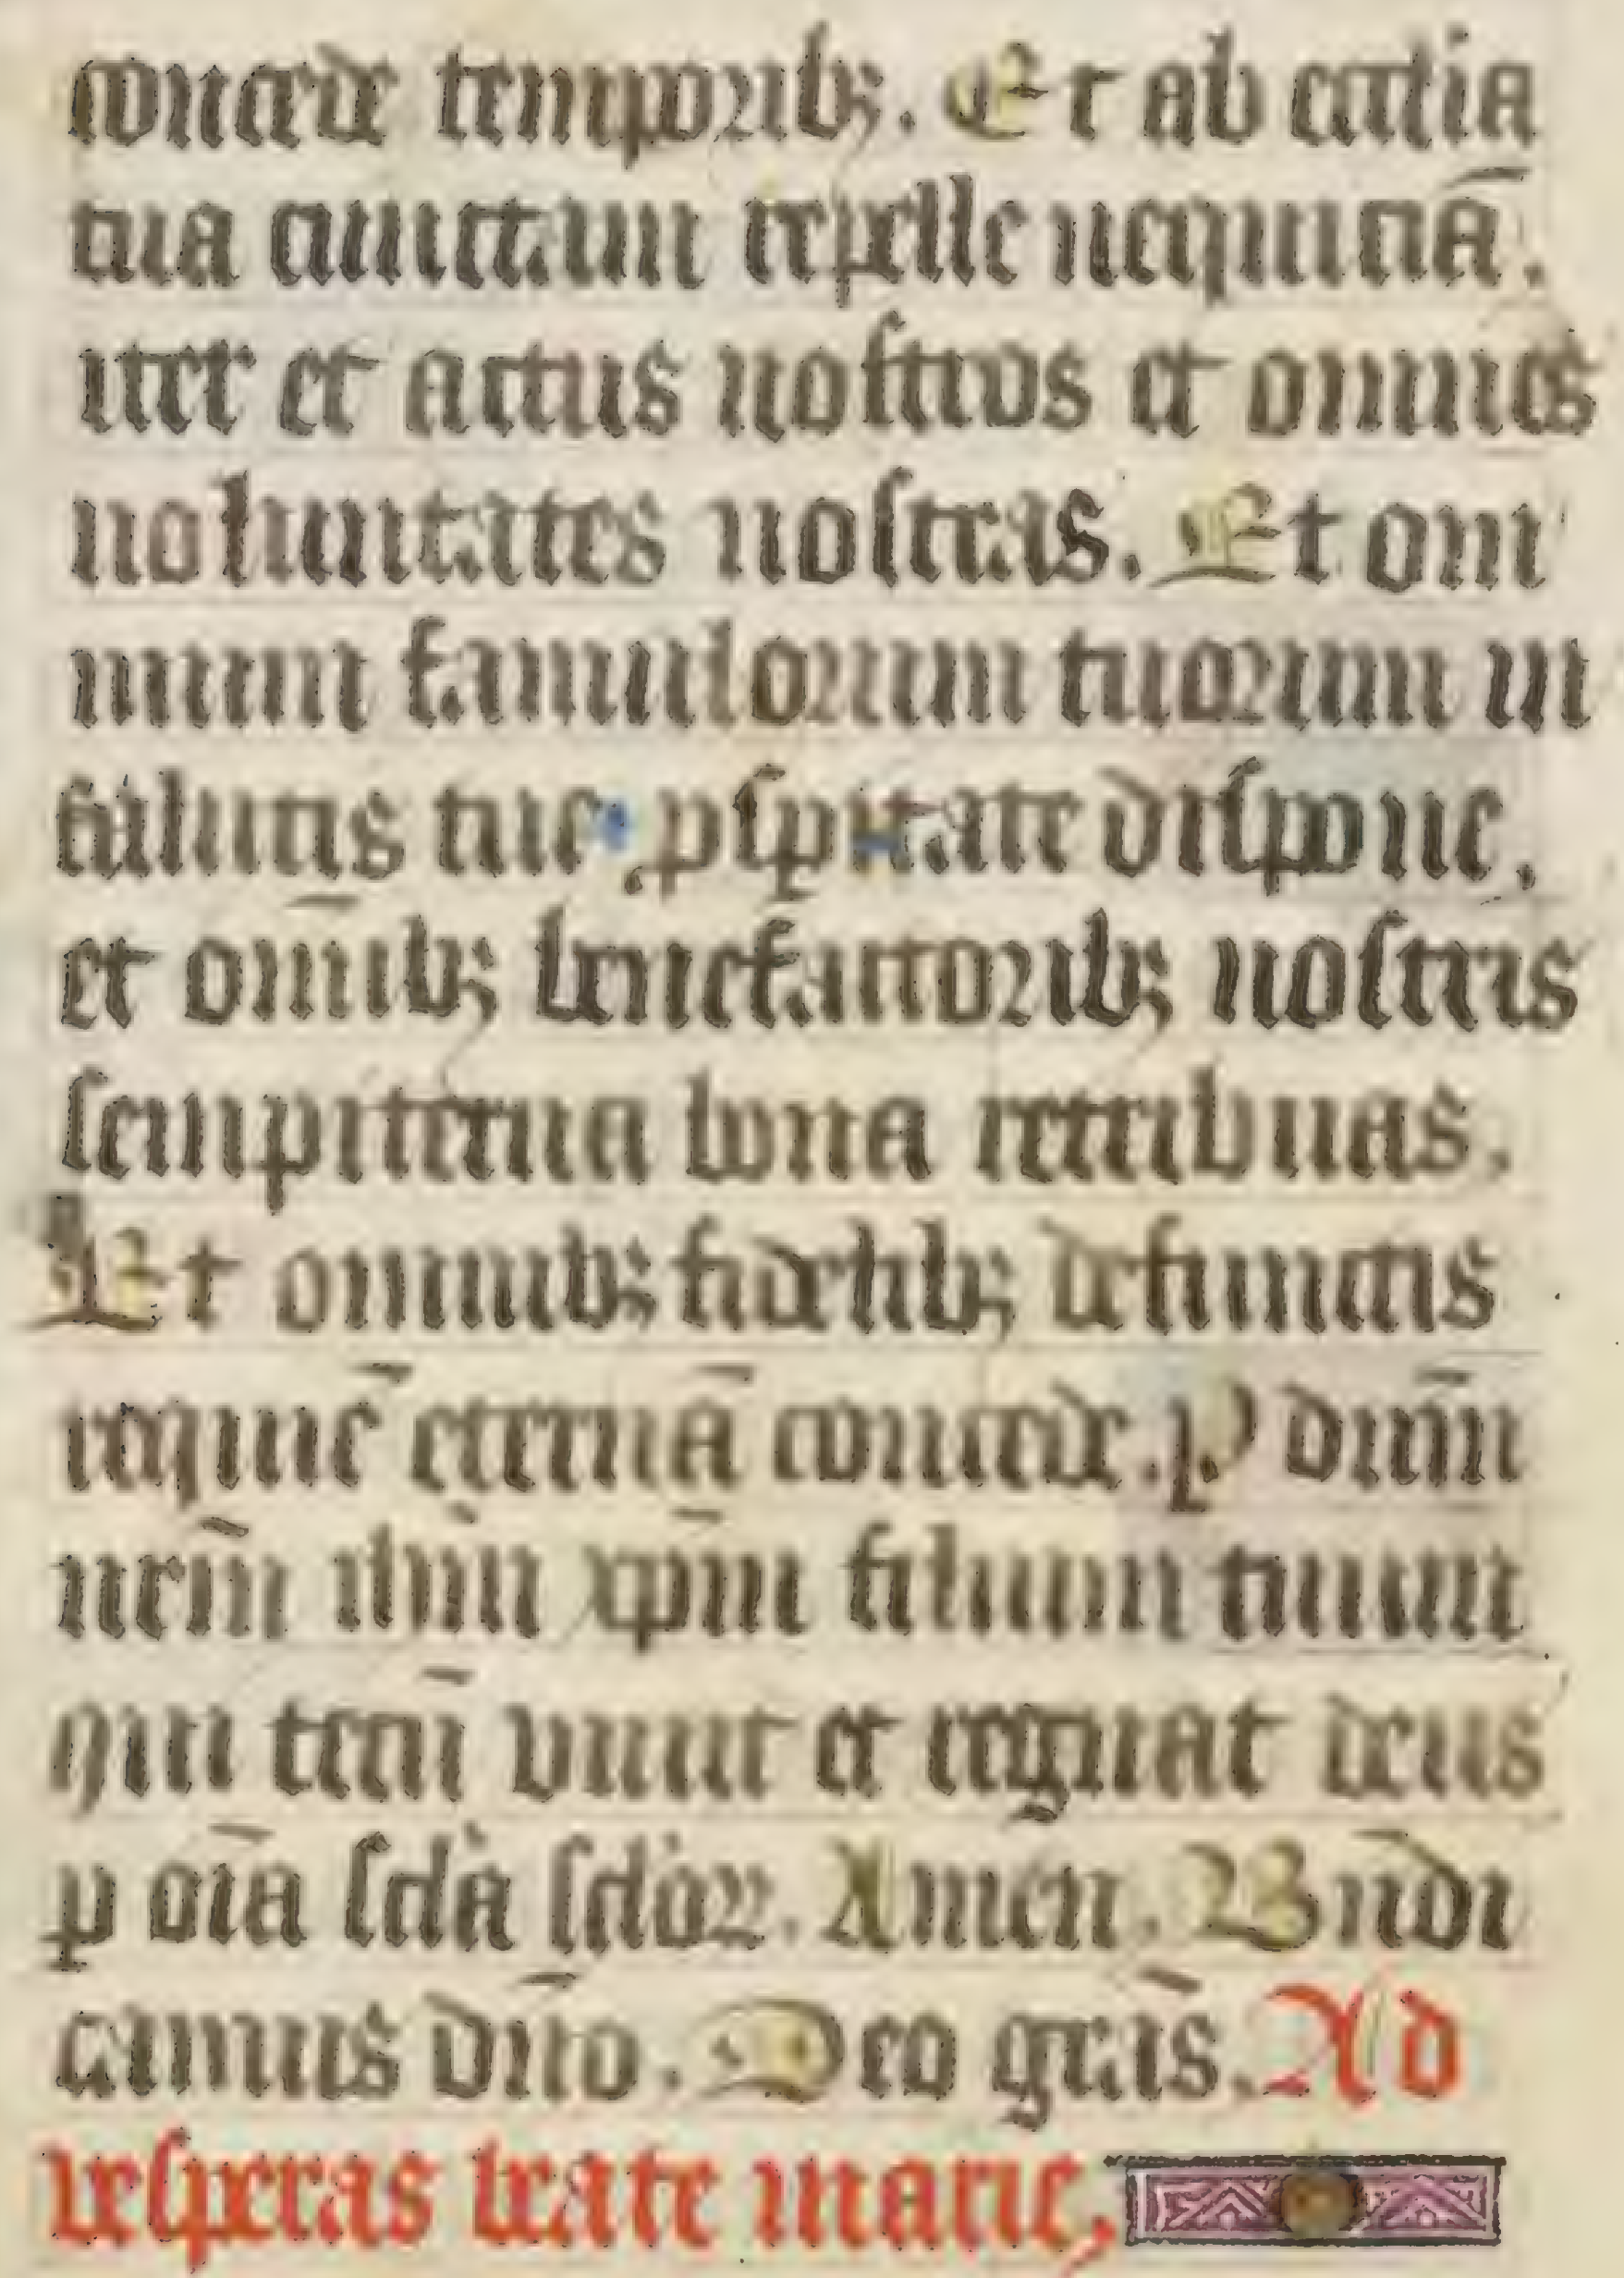 concede temporibꝫ. Et ab eccl̄ia
tua cunctam repelle nequiciā.
iter et actus nostros et omnes
uoluntates nostras. Et om
nium famulorum tuorum in
salutis tue ꝓsꝑitate dispone,
et om̄ibꝫ benefactoribꝫ nostris
sempiterna bona retribuas.
Et omnibꝫ fidelibꝫ defunctis
requiē eternā concede. P dn̄m
nr̄m ihm̄ xp̄m filium tuum
qui tecū viuit et regnat deus
ꝑ oīa scl̄a scl̄oꝝ. Amen. Bn̄di
camus dn̄o. Deo gr̄as. Ad
vesperas beate marie,